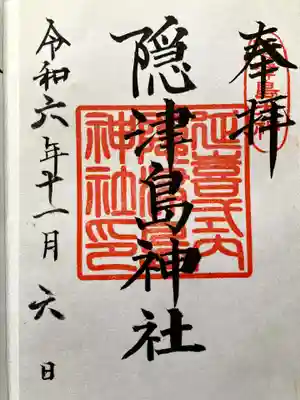 奉拝
隠津島神社
延喜式内
隠津島
神社印
令和六年十一月六日